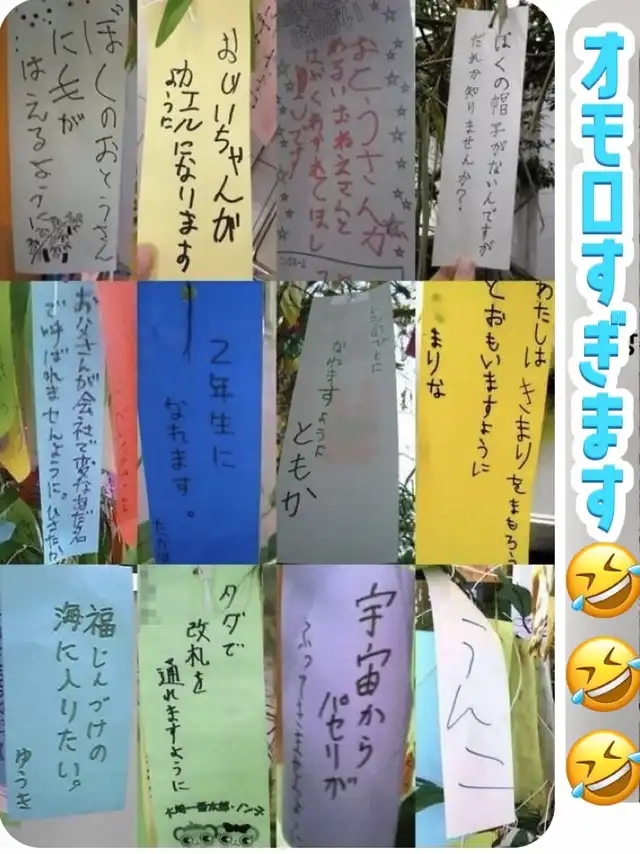 ぼくのおとうさん
に毛が
はえるように
おじいちゃんが
カエルになります
ように
おとうさんが
わるいおねえさんと
はやくわかれてほし
いです
ぼくの帽子がないんですが
だれか知りませんか?
お父さんが会社で変な渾名
で呼ばれませんように。ひさたか
2年生に
なれます。
なれますように
ともか
わたしは きまりをまもろう
とおもいますように
まりな
福じんづけの
海に入りたい。
ゆうき
タダで
改札を
通れますように
大崎一番太郎・ノンタ
宇宙から
パセリが
うんこ
オモロすぎます